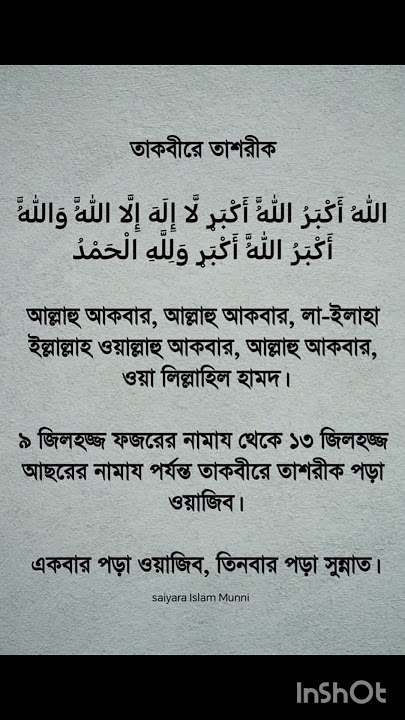 তাকবীরে তাশরীক
اللهُ أَكْبَرُ اللهَُّ أَكْبَرٕ لَّا إِلَهَ إِلَّا اللهَُّ وَاللهَُّ
أَكْبَرُ اللهَُّ أَكْبَرٕ وَلِلَّهِ الْحَمْدُ
আল্লাহু আকবার, আল্লাহু আকবার, লা-ইলাহা
ইল্লাল্লাহ ওয়াল্লাহু আকবার, আল্লাহু আকবার,
ওয়া লিল্লাহিল হামদ।
৯ জিলহজ্জ ফজরের নামায থেকে ১৩ জিলহজ্জ
আছরের নামায পর্যন্ত তাকবীরে তাশরীক পড়া
ওয়াজিব।
একবার পড়া ওয়াজিব, তিনবার পড়া সুন্নাত।
saiyara Islam Munni
InShOt